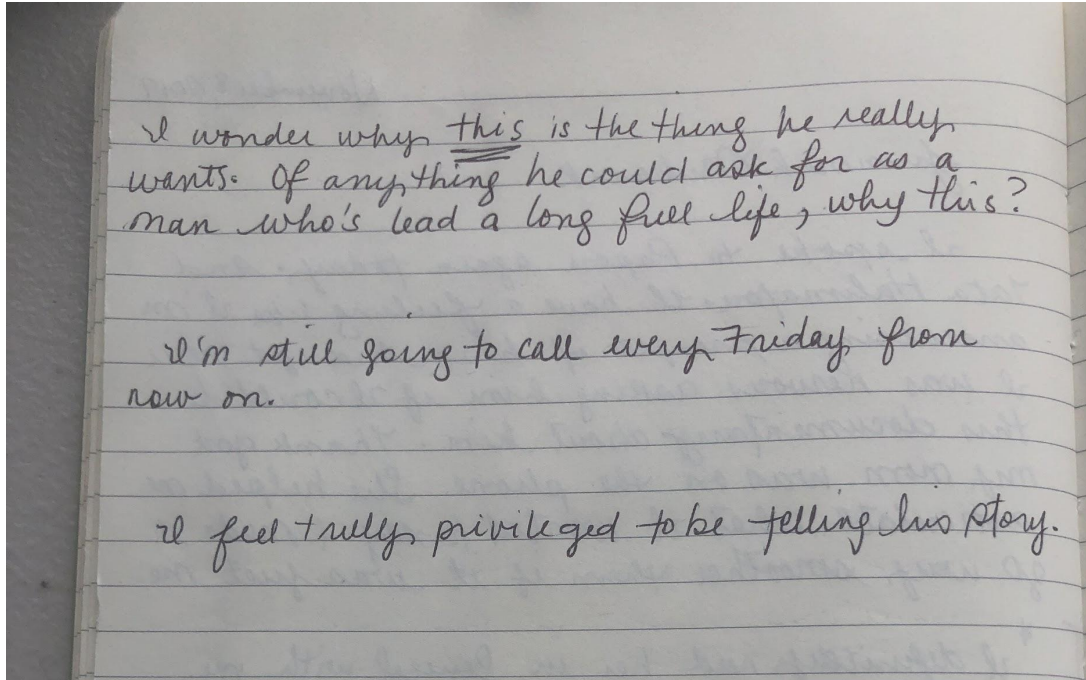 I wonder why this is the thing he really
wants. Of anything he could ask for as a
man who's lead a long full life, why this?
I'm still going to call every Friday from
now on.
I feel truly privileged to be telling his story.